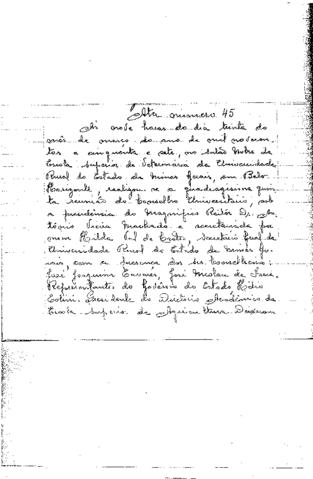 Ata numero 45
Às nove horas do dia trinta do
mês de março do ano de mil novecen-
tos e cinquenta e sete, no salão nobre da
Escola Superior de Veterinária da Universidade
Rural do Estado de Minas Gerais, em Belo
Horizonte, realizou-se a quadragésima quin-
ta reunião do Conselho Universitário, sob
a presidência do Magnífico Reitor Dr. An-
tônio Vieira Machado e secretariada por
mim Hilda de Castro, Secretária Geral da
Universidade Rural do Estado de Minas Ge-
rais com a presença dos srs. Conselheiros:
José Joaquim Tavares, José
Representantes do Govêrno do Estado Hélio
Presidente do Diretório Acadêmico da
Escola Superior de Agricultura. Deixaram